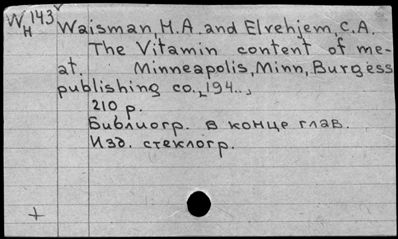 W 143
H
Waisman, H.A. and Elvehjem, C.A.
The Vitamin content of me-
at. Minneapolis, Minn, Burgess
publishing co., 194..,
210 p.
Библиогр. в конце глав.
Изд. стеклогр.
+